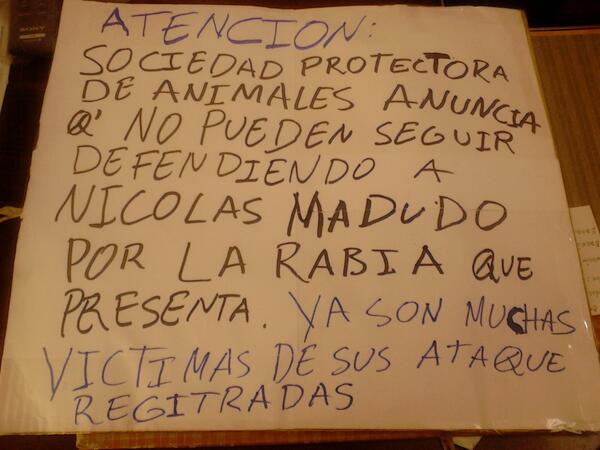 ATENCION:
SOCIEDAD PROTECTORA
DE ANIMALES ANUNCIA
Q' NO PUEDEN SEGUIR
DEFENDIENDO A
NICOLAS MADUDO
POR LA RABIA QUE
PRESENTA. YA SON MUCHAS
VICTIMAS DE SUS ATAQUE
REGITRADAS
SONY